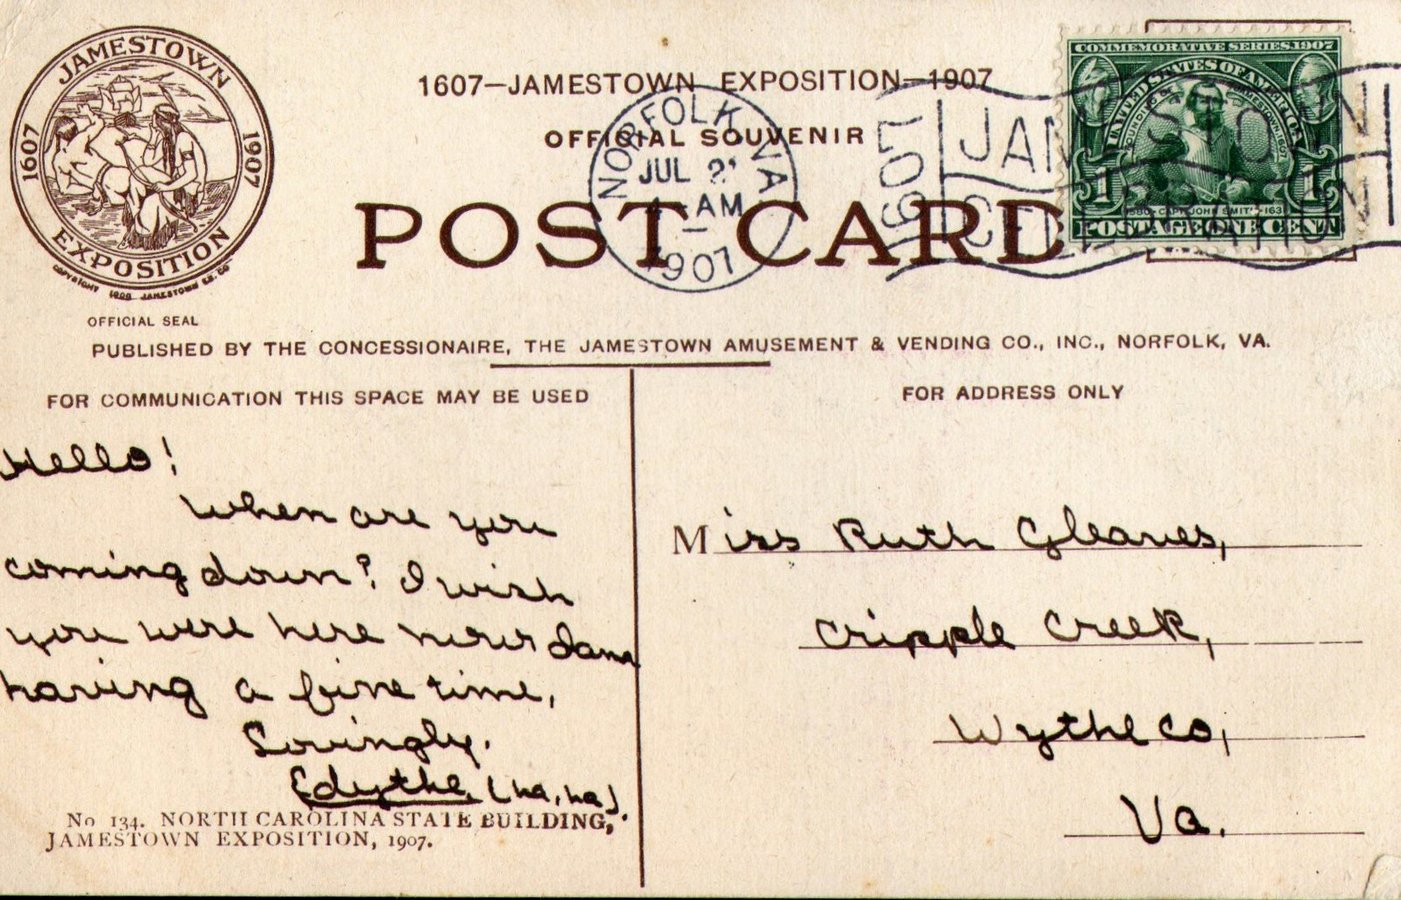 JAMESTOWN
1607 1907
EXPOSITION
COPYRIGHT 1906 JAMESTOWN EX. CO.
OFFICIAL SEAL
1607—JAMESTOWN EXPOSITION—1907
OFFICIAL SOUVENIR
POST CARD
NORFOLK VA.
JUL
-AM
1907
1907
JAMESTOWN
CELEBRATION
COMMEMORATIVE SERIES 1907
UNITED STATES OF AMERICA
FOUNDING OF JAMESTOWN 1607
1 1
1580-CAPT. JOHN SMITH-1631
POSTAGE ONE CENT
PUBLISHED BY THE CONCESSIONAIRE, THE JAMESTOWN AMUSEMENT & VENDING CO., INC., NORFOLK, VA.
FOR COMMUNICATION THIS SPACE MAY BE USED
Hello!
When are you
coming down? I wish
you were here now
having a fine time,
Lovingly.
Edythe (ha, ha)
No 134. NORTH CAROLINA STATE BUILDING,
JAMESTOWN EXPOSITION, 1907.
FOR ADDRESS ONLY
Miss Ruth Gleaves,
Cripple Creek,
Wythe Co,
Va.